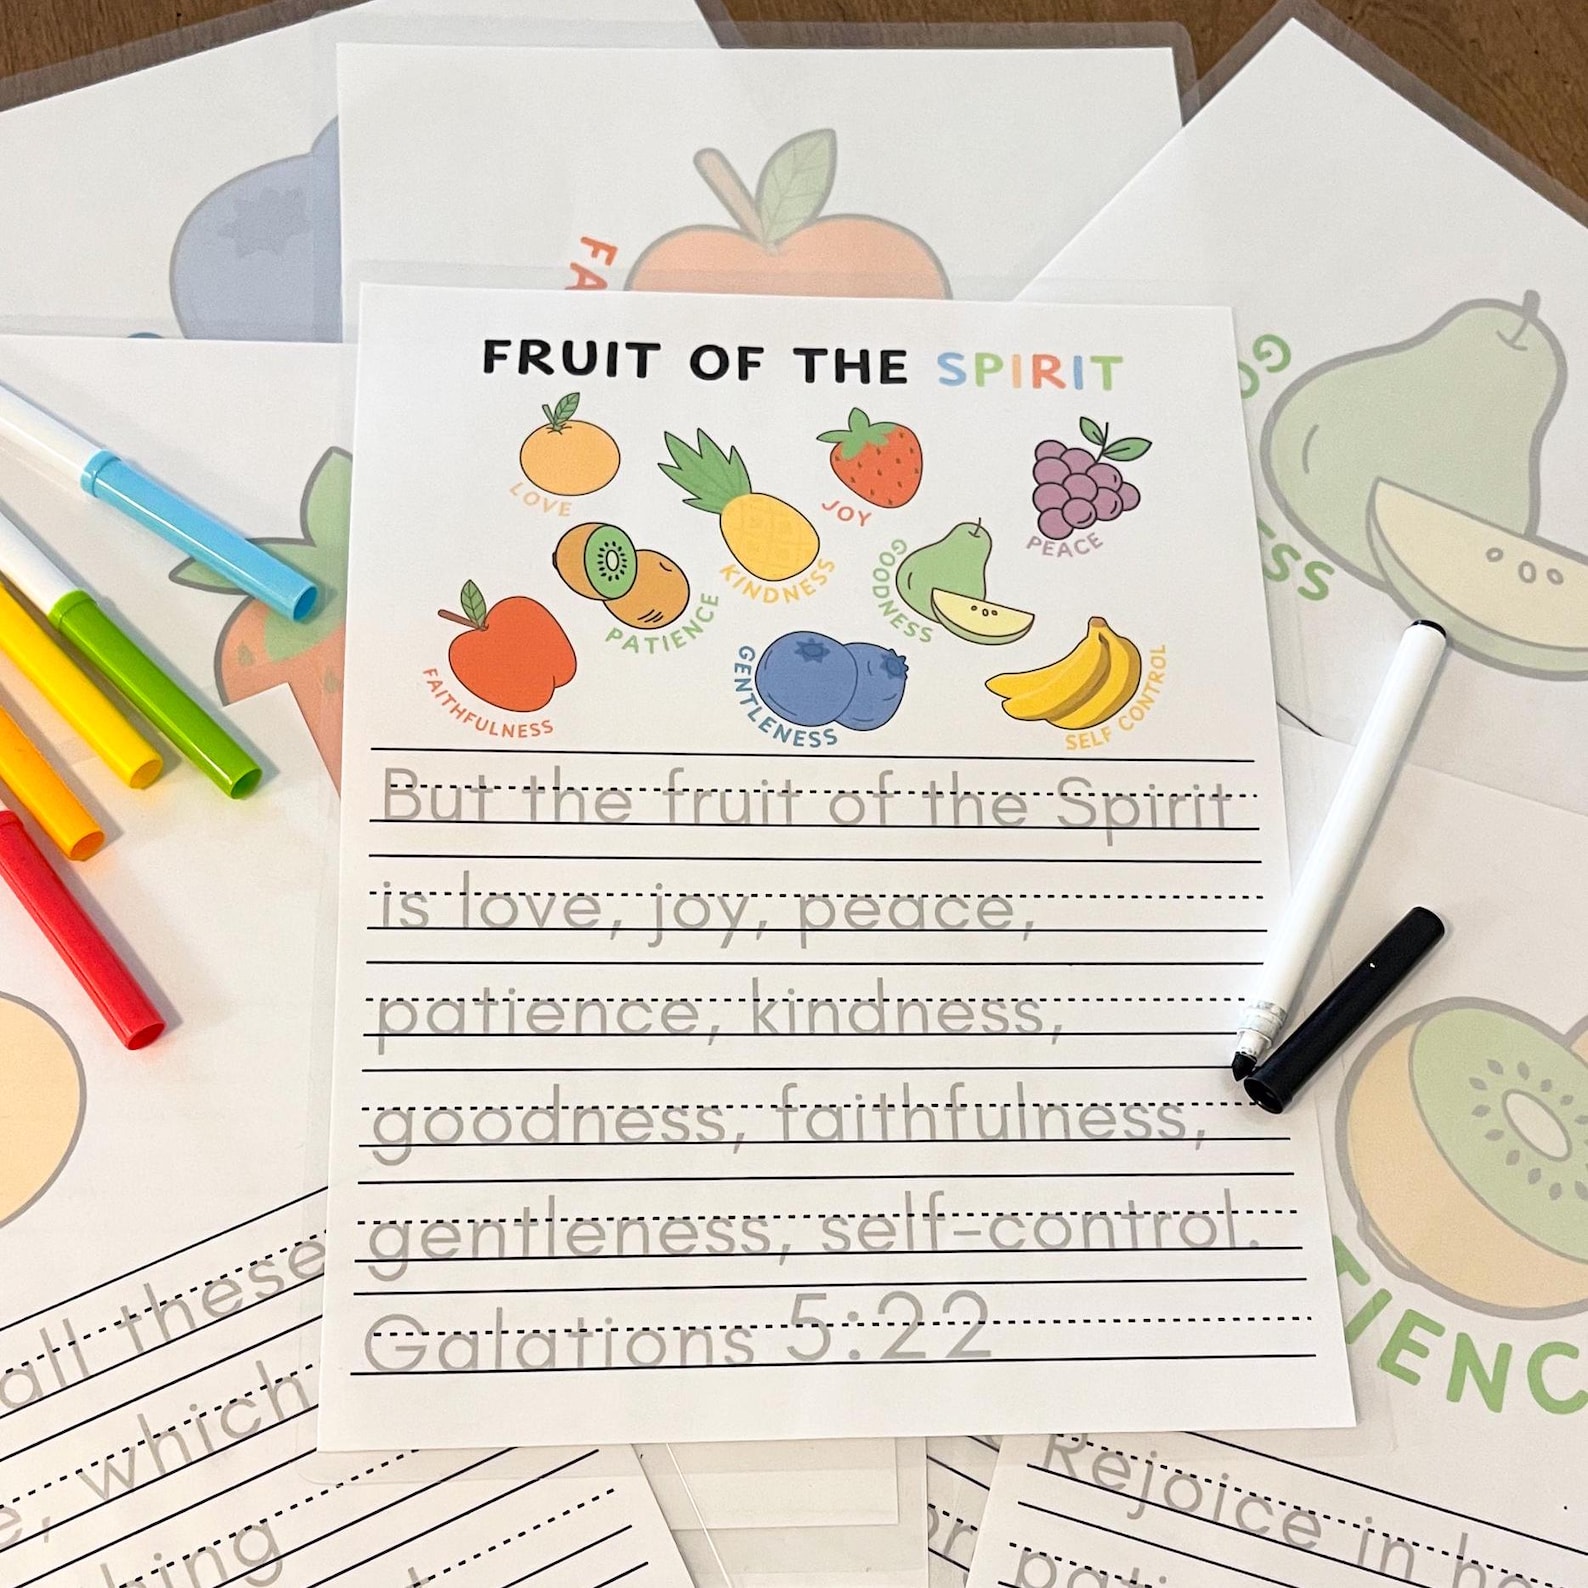 FA
GO
SS
FRUIT OF THE SPIRIT
LOVE
JOY
PEACE
KINDNESS
GOODNESS
PATIENCE
FAITHFULNESS
GENTLENESS
SELF CONTROL
But the fruit of the Spirit
is love, joy, peace,
patience, kindness,
goodness, faithfulness,
gentleness, self-control.
Galations 5:22
TIENC
all these
, which
hing
Rejoice in
or